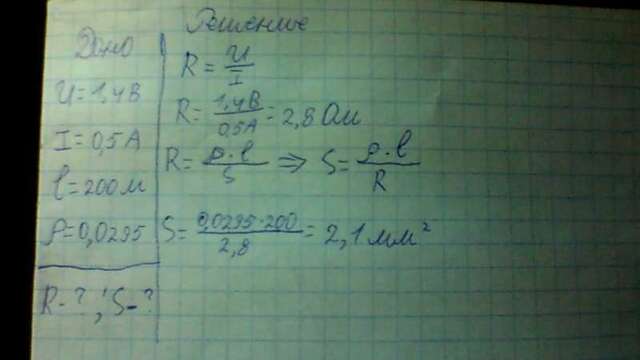 Дано
U=1,4В
I=0,5А
l=200м
ρ=0,0295
R-?, S-?
Решение
R = U/I
R = 1,4В/0,5А = 2,8 Ом
R = ρ·l/S ⇒ S = ρ·l/R
S = 0,0295·200/2,8 = 2,1 мм²